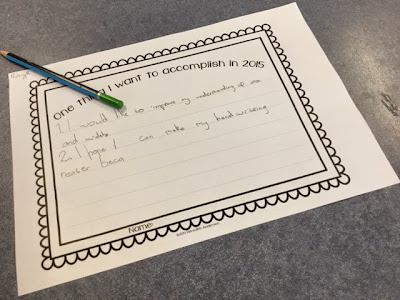 one thing I want to accomplish in 2015
1. I would like to improve my understanding of
and
2. I hope I can make my handwriting
neater beca
Name: